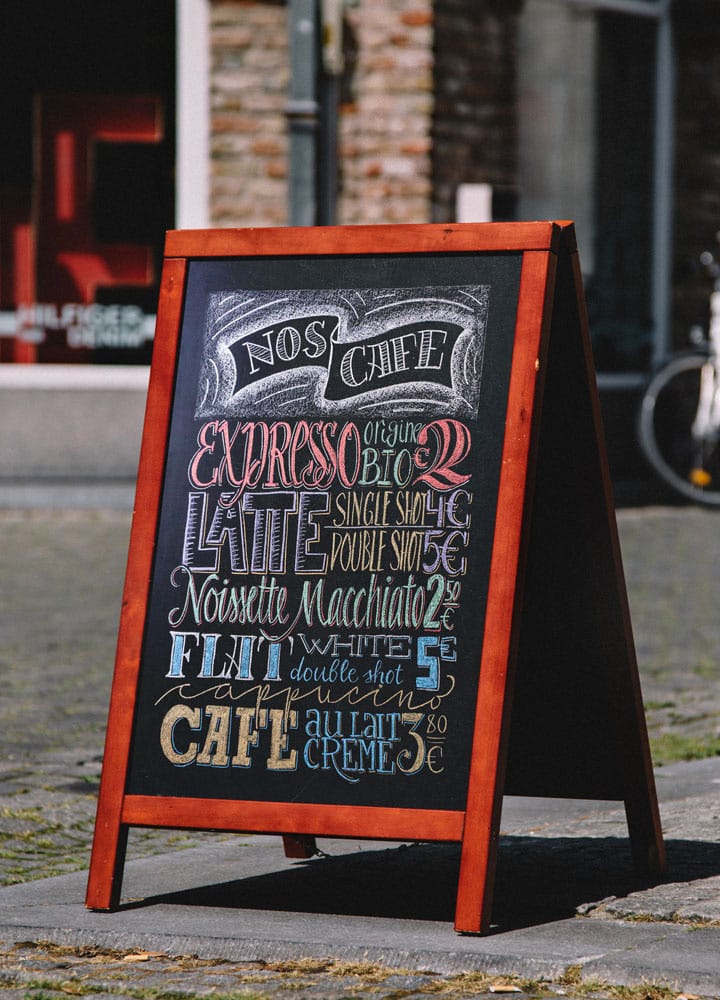 HILFIGER
DENIM
NOS CAFE
EXPRESSO origine BIO €2
LATTE SINGLE SHOT 4€
DOUBLE SHOT 5€
Noissette Macchiato 2 50 €
FLAT WHITE double shot 5€
cappucino
CAFE au LAIT CREME 3 80 €